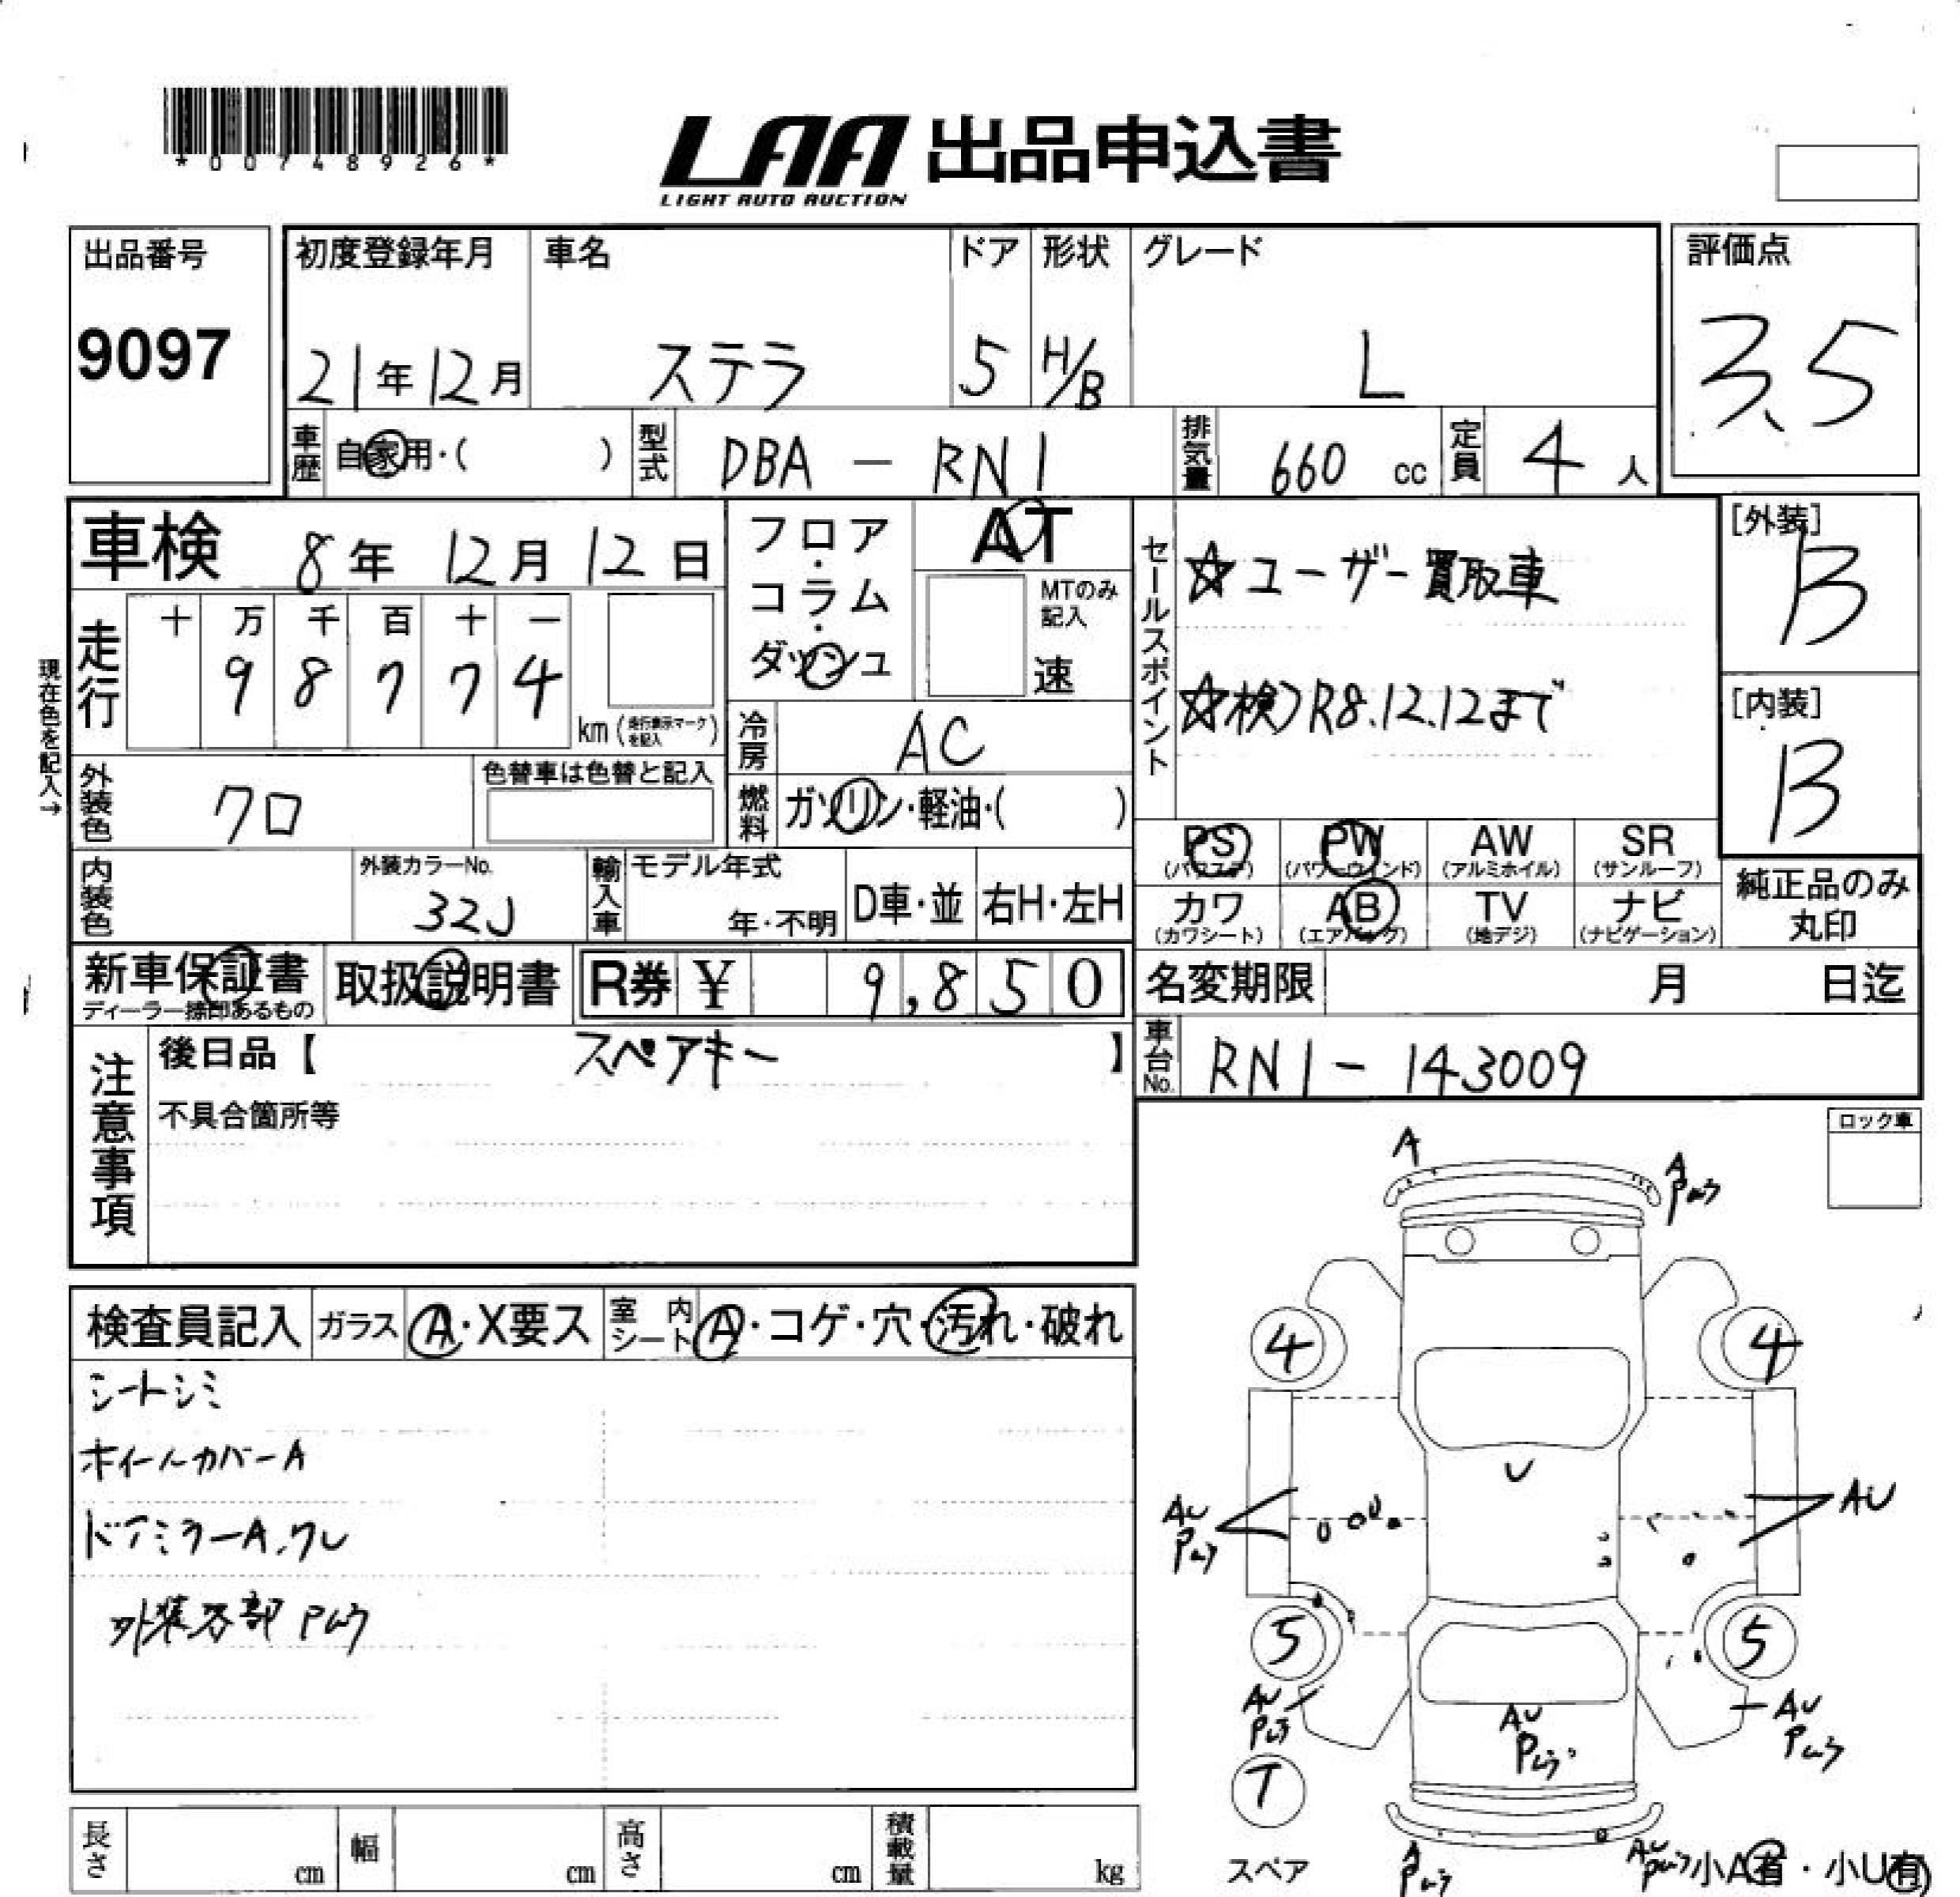 *00748926*
LAA 出品申込書
LIGHT AUTO AUCTION
出品番号
9097
初度登録年月
21年12月
車名
ステラ
ドア
5
形状
H/B
グレード
L
評価点
3.5
車歴
自家用・( )
型式
DBA - RN1
排気量
660 cc
定員
4人
車検 8年 12月 12日
走行
十 万 千 百 十 一
9 8 7 7 4
km(走行表示マークを記入)
現在色を記入→
外装色
クロ
色替車は色替と記入
内装色
外装カラーNo.
32J
フロア・コラム・ダッシュ
AT
MTのみ記入
速
冷房
AC
燃料
ガソリン・軽油・( )
輸入車
モデル年式
年・不明
D車・並
右H・左H
セールスポイント
☆ユーザー買取車
☆検)R8.12.12まで
[外装]
B
[内装]
B
PS
(パワステ)
PW
(パワーウインド)
AW
(アルミホイル)
SR
(サンルーフ)
カワ
(カワシート)
AB
(エアバッグ)
TV
(地デジ)
ナビ
(ナビゲーション)
純正品のみ
丸印
新車保証書
ディーラー捺印あるもの
取扱説明書
R券 ¥ 9,850
名変期限 月 日迄
車台No.
RN1 - 143009
注意事項
後日品【 スペアキー 】
不具合箇所等
ロック車
検査員記入
ガラス
A・X要ス
室内シート
A・コゲ・穴・汚れ・破れ
シートシミ
ホイールカバーA
ドアミラーA.ワレ
外装各部 Pムラ
A
A
Pムラ
4
4
U
AU
Pムラ
AU
5
5
AU
Pムラ
AU
Pムラ
AU
Pムラ
T
スペア
A
Pムラ
AU
Pムラ
小A有・小U有
長さ cm
幅 cm
高さ cm
積載量 kg